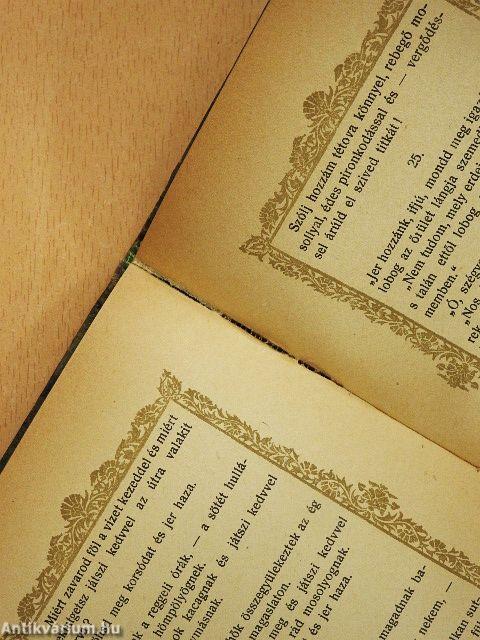 Szólj hozzám tétova könnyel, rebegő mo-
sollyal, édes pironkodással és — vergődés-
sel áruld el szived titkát!
25.
„Jer hozzánk, ifjú, mondd meg iga
lobog az őrület lángja szemed
„Nem tudom, mely erdei
s talán ettől lobog
memben."
„Ó, szégye
„Nos
rek
ért zavarod föl a vizet kezeddel és miért
getsz játszi kedvvel az útra valakit
meg korsódat és jer haza.
k a reggeli órák, — a sötét hullá-
hömpölyögnek.
ok kacagnak és játszi kedvvel
ymásnak.
ők összegyülekeztek az ég
magaslaton.
meg és játszi kedvvel
ád mosolyognak.
és jer haza.
magadnak ba-
nekem, —
Antikvarium.hu